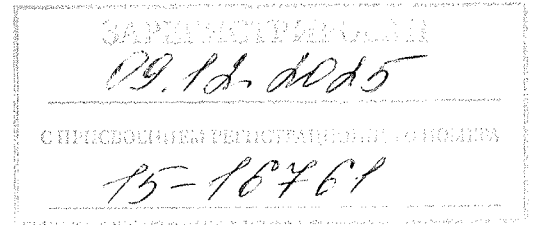 ЗАРЕГИСТРИРОВАН
09.12.2025
С ПРИСВОЕНИЕМ РЕГИСТРАЦИОННОГО НОМЕРА
15-16761